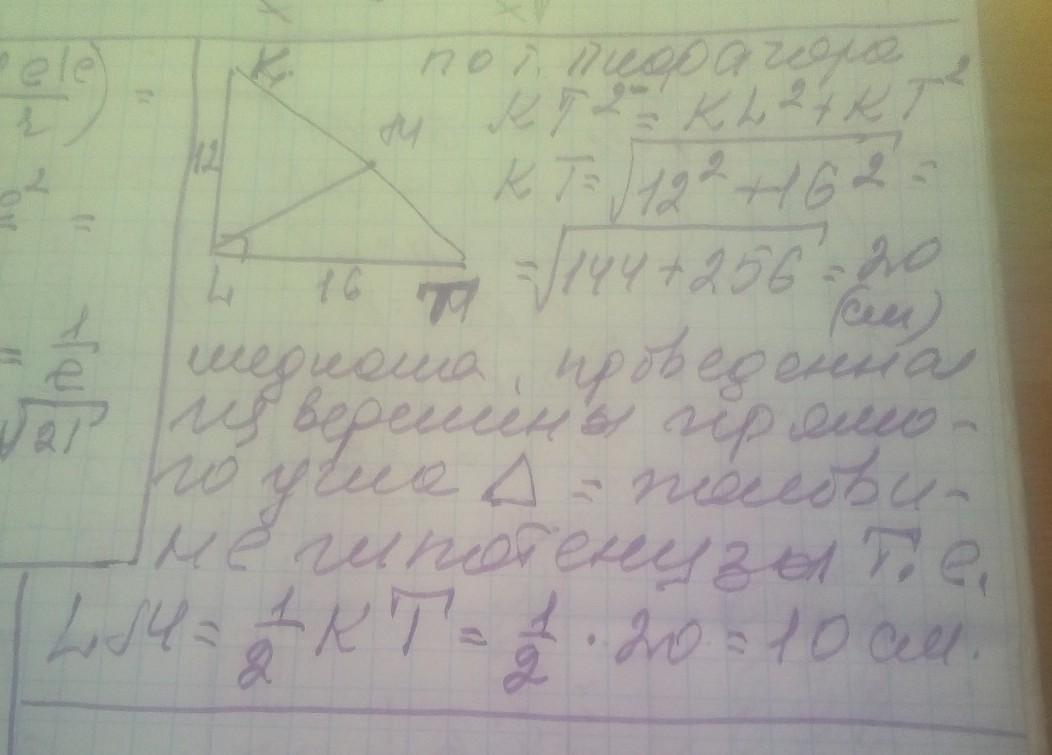 e|e
r) =
e² =
= 1/e
√21
K.
12
M
L
16
T
по т. Пифрагора
KT² = KL² + KT²
KT = √12² + 16² =
= √144 + 256 = 20
(см)
медиана, проведенна
из вершины прямо-
го угла △ = полови-
не гипотенузы т. е.
LM = 1/2 KT = 1/2 · 20 = 10 см.